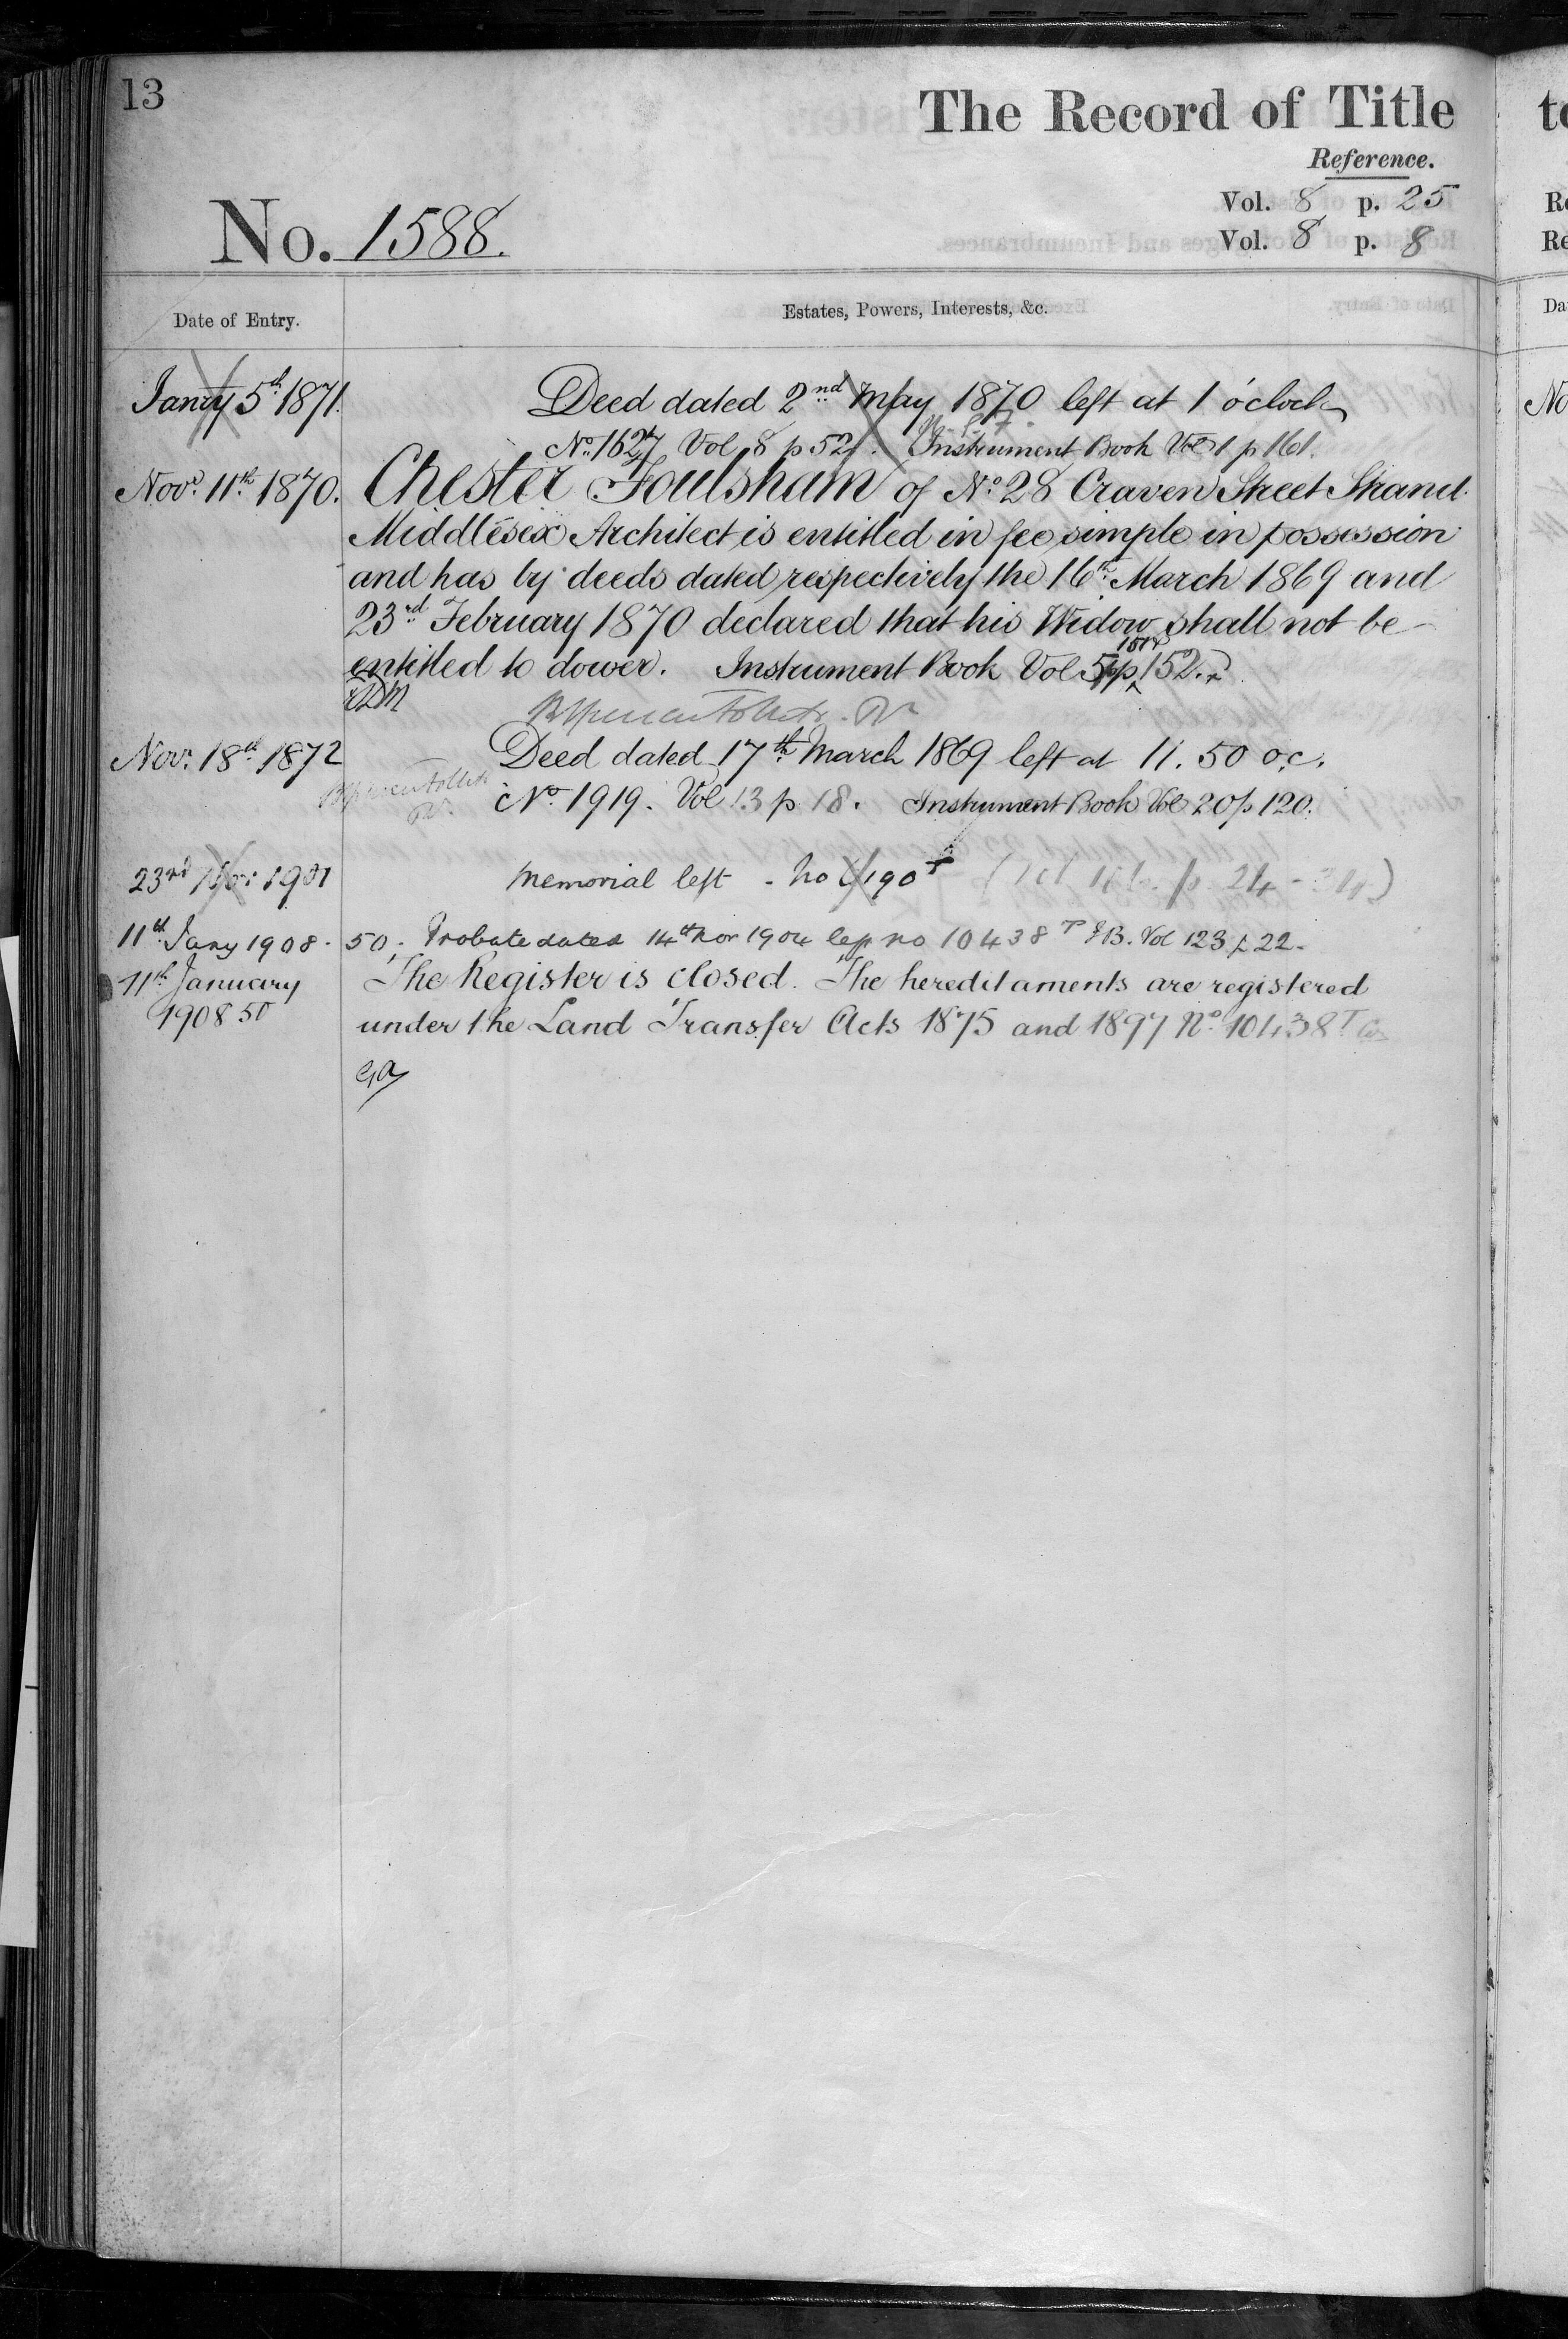 13
The Record of Title
Reference.
Vol. 8 p. 25
Vol. 8 p. 8
No. 1588.
Date of Entry.
Estates, Powers, Interests, &c.
Jany 5th 1871.
Deed dated 2nd May 1870 left at 1 o'clock
No. 1627 Vol 8 p 52. Instrument Book Vol 1 p 161.
Novr. 11th. 1870.
Chester Foulsham of No. 28 Craven Street Strand
Middlesex Architect is entitled in fee simple in possession
and has by deeds dated respectively the 16th. March 1869 and
23rd February 1870 declared that his Widow shall not be
entitled to dower. Instrument Book Vol 5 pp 151 & 152.
Nov. 18th 1872
Deed dated 17th March 1869 left at 11.50 o.c.
No. 1919. Vol 13 p 18. Instrument Book Vol 20 p 120.
23rd Nov: 1901
Memorial left - No 6190T
11th Jany 1908.
50. Probate dated 14th Nov 1904 left No 10438 T I B. Vol 123 p 22.
11th January
1908 50
The Register is closed. The hereditaments are registered
under the Land Transfer Acts 1875 and 1897 No. 10438 T